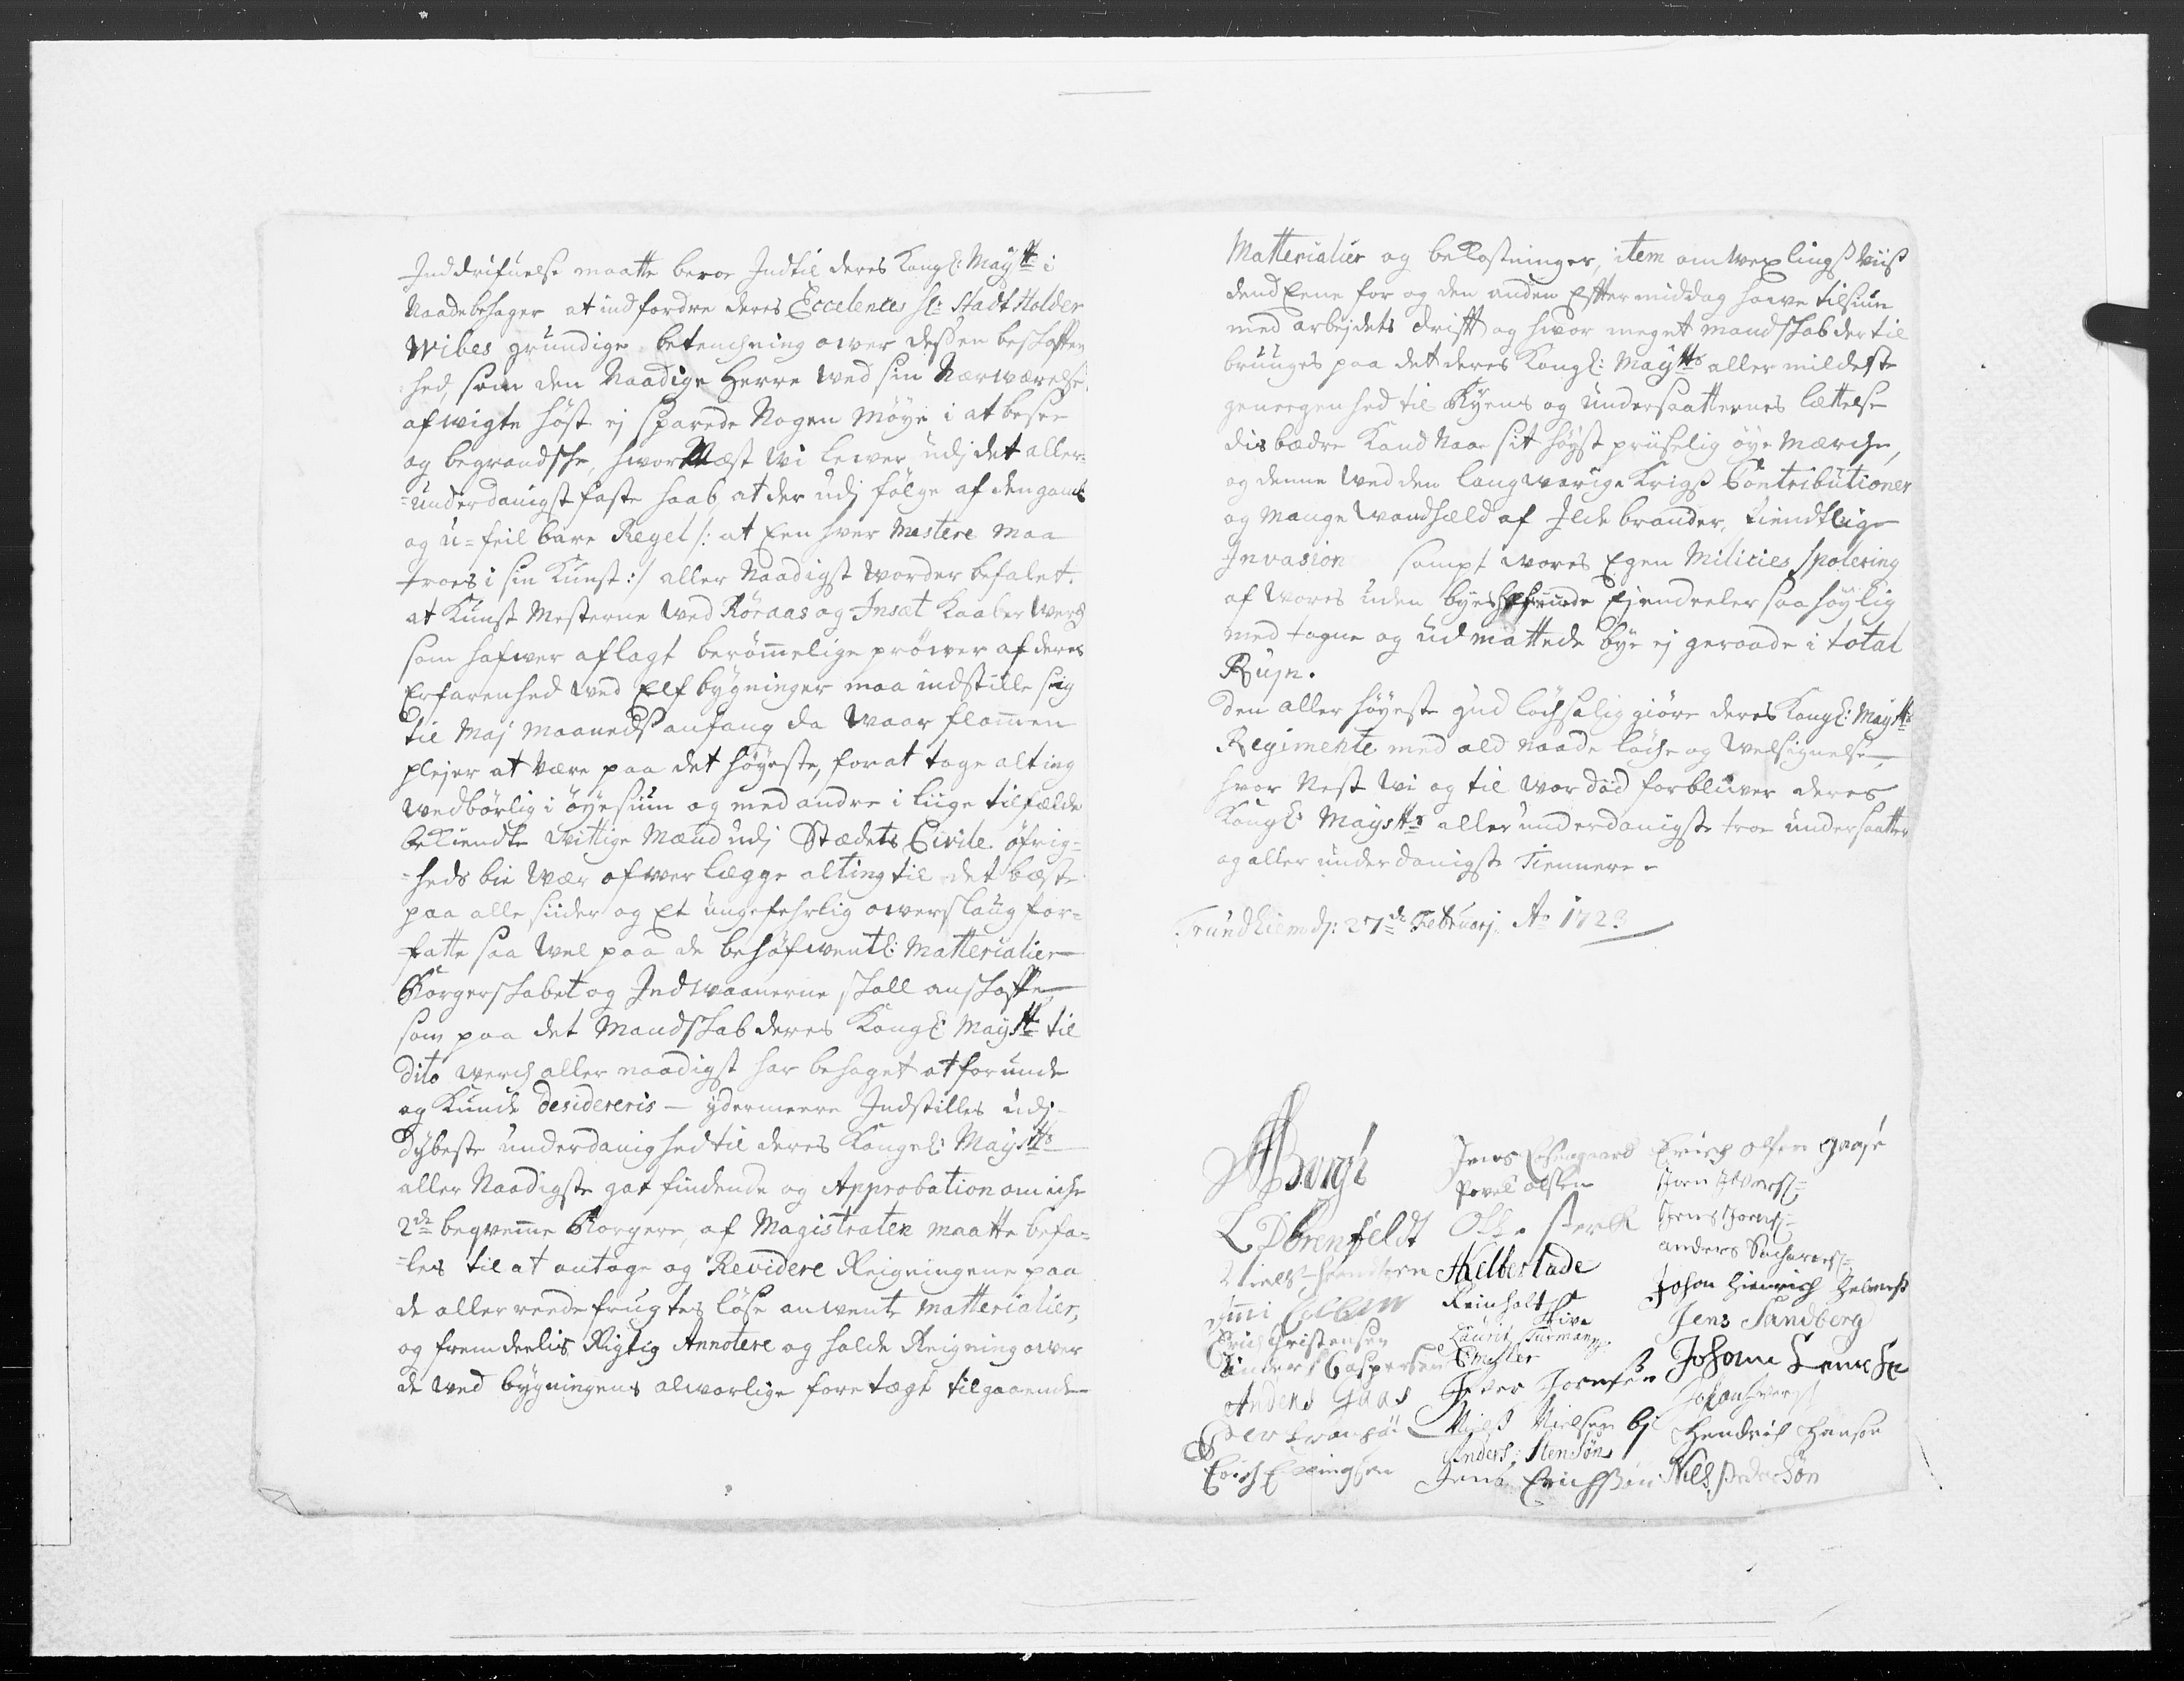 Inddrifuelse maatte beroe Indtil deres Kongl: Maytt: i
Naade behager at indfordre deres Eccelences hl: Stadt Holder
Wibes grundige betenchning ower desßen beskaffen
hed, som den Naadige Herre wed sin Nærwærelse
afwigte höst ej sparede Nogen möye i at besee
og begrandsche, hwor Næst wi lewer udj det aller=
=underdanigst faste haab, at der udj fölge af den gaml
og u=feilbare Regel /: at Een hver Mestere maa
troes i sin Kunst :/ aller Naadigst worder befalet.
at Kunst Mesterne wed Röraas og Insæt Kaaber Werch
som hafwer aflagt berömmelige pröwer af deres
Erfarenhed wed Elf bygninger maa indstille sig
til Maj Maaneds anfang da waar flommen
plejer at være paa det höyeste, for at tage alting
wedbörlig i öyesiun og med andre i liige tilfælde
bekiendte wittige Mænd udj Stædets Civile öfrig=
=heds bie wær ofwerlægge alting til det bæste
paa alle siider og Et ungefehrlig owerslaug for=
=fatte saa wel paa de behöfwentl: Matterialier
Borgerskabet og Indwaanerne skall anskaffe,
som paa det Mandskab deres Kongl: Maytt: til
dito werch aller naadigst har behaget at forunde
og Kunde desidereris — ydermeere Indstilles udj
dybeste underdanighed til deres Kongel: Maytts
aller Naadigste got findende og Approbation om iche
2de beqvemme Borgere, af Magistraten maatte befa=
=les til at antage og Revidere Reigningene paa
de allerreede frugtes löse anwente Matterialier,
og fremdeelis Rigtig Annotere og holde Reigning ower
de wed bygningens alworlige foretægt tilgaaende
Matterialier og bekostninger, item omwexlings viis
dend Eene for og den anden Efftermiddag hawe tilsiun
med arbejdets drifft og hwor meget mandskab dertil
bruuges paa det deres Kongl: Maytts aller mildeste
geneegenhed til Byens og undersaatternes lættelse
dis bædre Kand Naae sit höyst priiselig öye Mærche,
og denne wed den langwarige Krigs Contributioner
og mange wandheld af Ilde brander, fiendtlige
Invasion sampt wores Egen Milities spolering
af wores uden byes Ejendeeler saa höylig
med tagne og udmattede bye ej geraade i total
Rujn.
Den aller höyeste gud lochsalig giöre deres Kongl: Maytts
Regimente med ald naade loche og welsignelse,
hwor Nest wi og til wor död forbliwer deres
Kongl: Maystts aller underdanigste troe undersaatter
og aller underdanigste Tiennere.
Trundhiem d: 27de Februarj Ao 1723
Borgh
L Dörenfeldt
Erich Christensen
Anders Caspersen
Anders Gaas
Povel olsen
HKelberlade
Reinholt
Laurit Furmann
Peter Joensen
Niels Nielsen
Anders: Stensön
Jens Erichsön
Erich olsen gaase
anders
Johan Hinrich
Jens Sandberg
Johan
Hendrich Hansen
Niels Pedersön